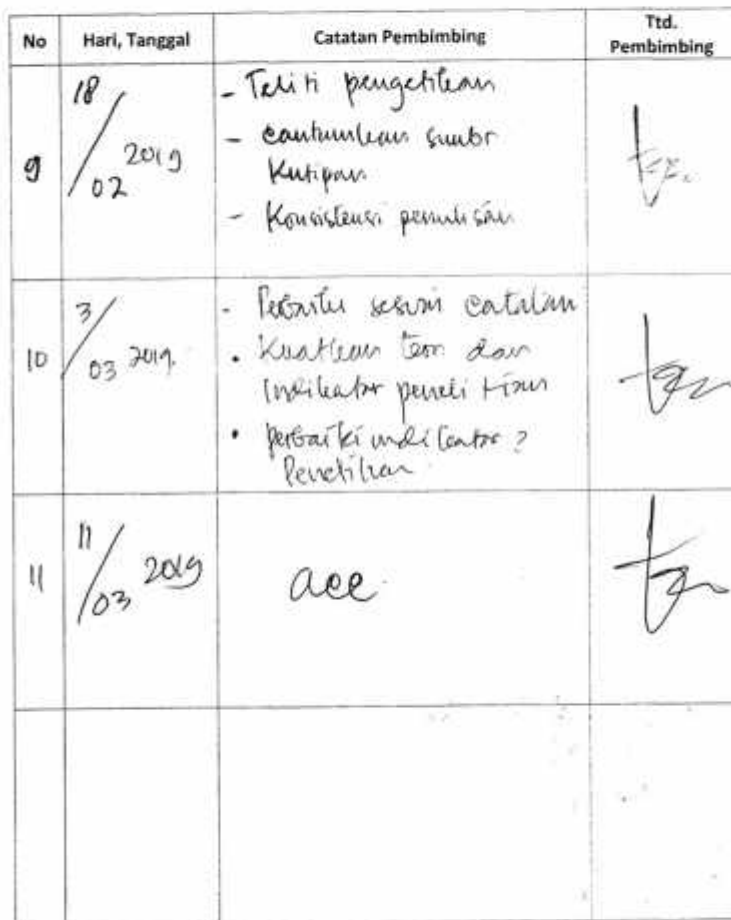 No Hari, Tanggal Catatan Pembimbing Ttd. Pembimbing
9 18/02 2019
- Teliti pengetikan
- cantumkan sumbr
Kutipan
- Konsistensi penulisan
10 3/03 2019.
- Perbaiki sesuai catatan
• Kuatkan teori dan
Indikator penelitian
• perbaiki indikator ?
Penelitian
11 11/03 2019 acc